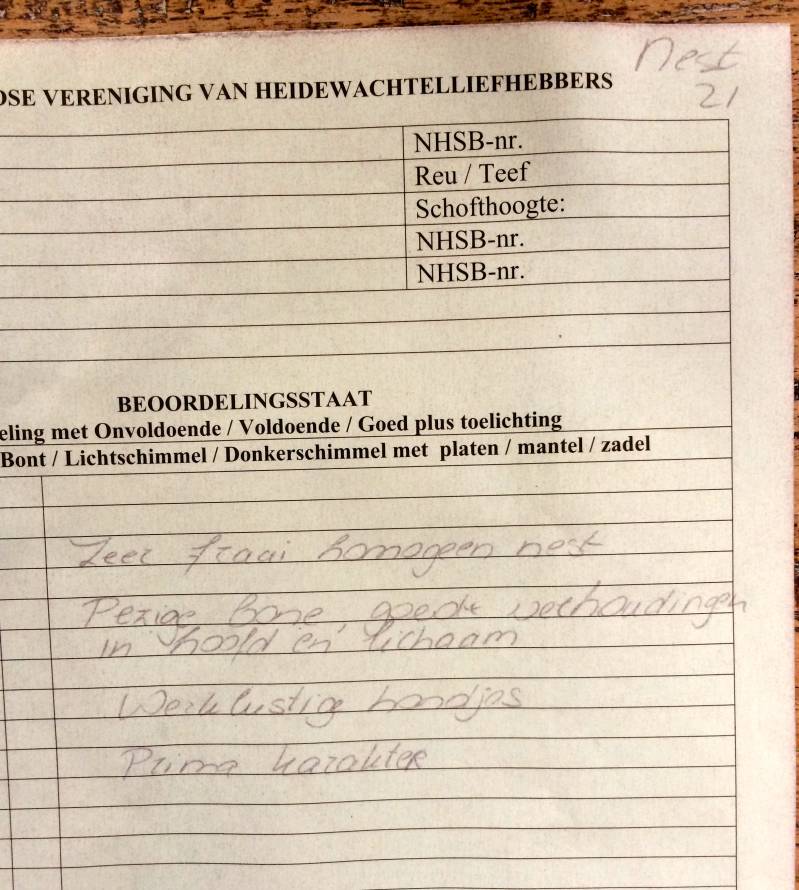 Nest
21
OSE VERENIGING VAN HEIDEWACHTELLIEFHEBBERS
NHSB-nr.
Reu / Teef
Schofthoogte:
NHSB-nr.
NHSB-nr.
BEOORDELINGSSTAAT
eling met Onvoldoende / Voldoende / Goed plus toelichting
Bont / Lichtschimmel / Donkerschimmel met platen / mantel / zadel
Zeer fraai homogeen nest
Pezige bone, goede verhoudingen
in hoofd en lichaam
Werklustige hondjes
Prima karakter